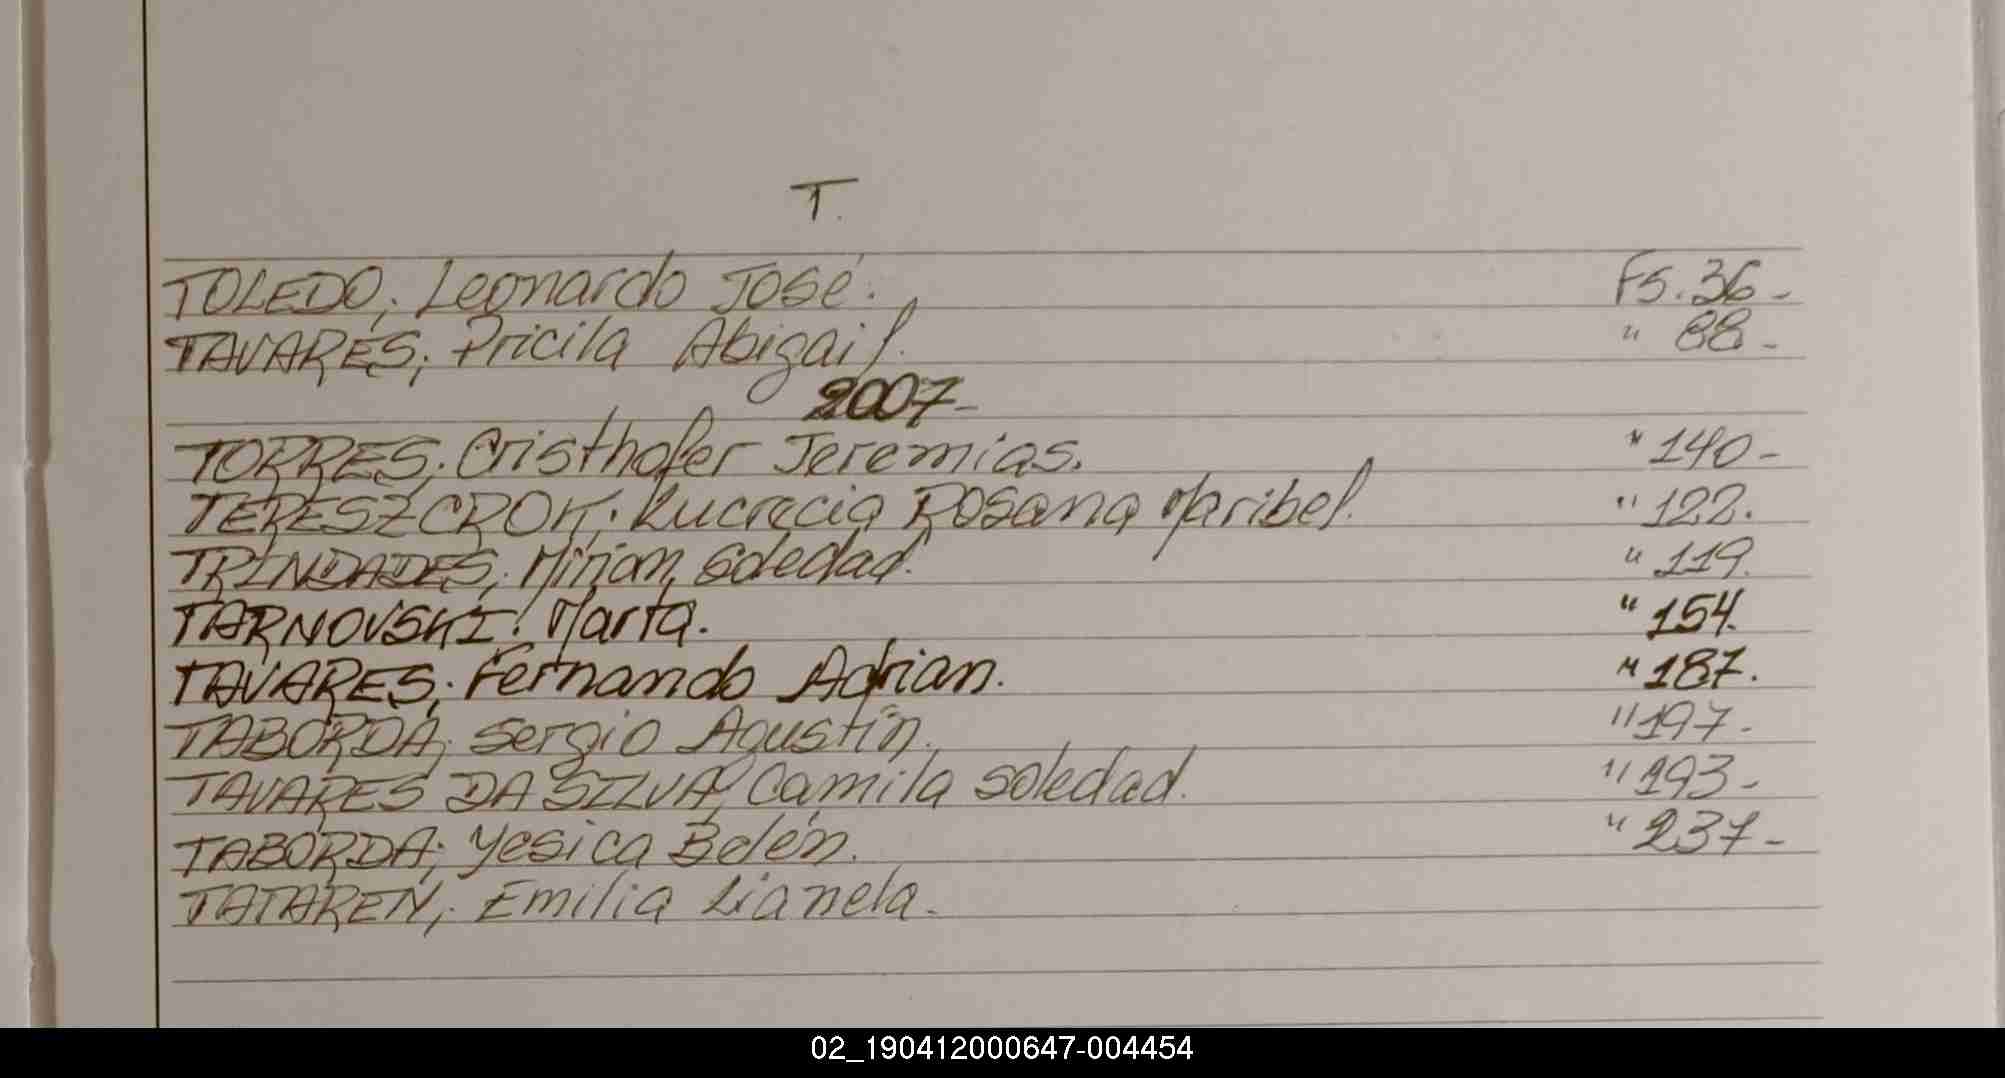 T.
TOLEDO; Leonardo José. Fs. 36-
TAVARES; Pricila Abigail. " 88-
2007-
TORRES; Cristhofer Jeremías. " 140-
TERESZCROK; Lucrecia Rosana Maribel. " 122.
TRINDADES; Mirian Soledad. " 119.
TARNOVSKI; Marta. " 154.
TAVARES; Fernando Adrian. " 187.
TABORDA; Sergio Agustín. " 197-
TAVARES DA SILVA; Camila Soledad. " 193-
TABORDA; Yesica Belén. " 237-
TATAREN; Emilia Lianela.
02_190412000647-004454